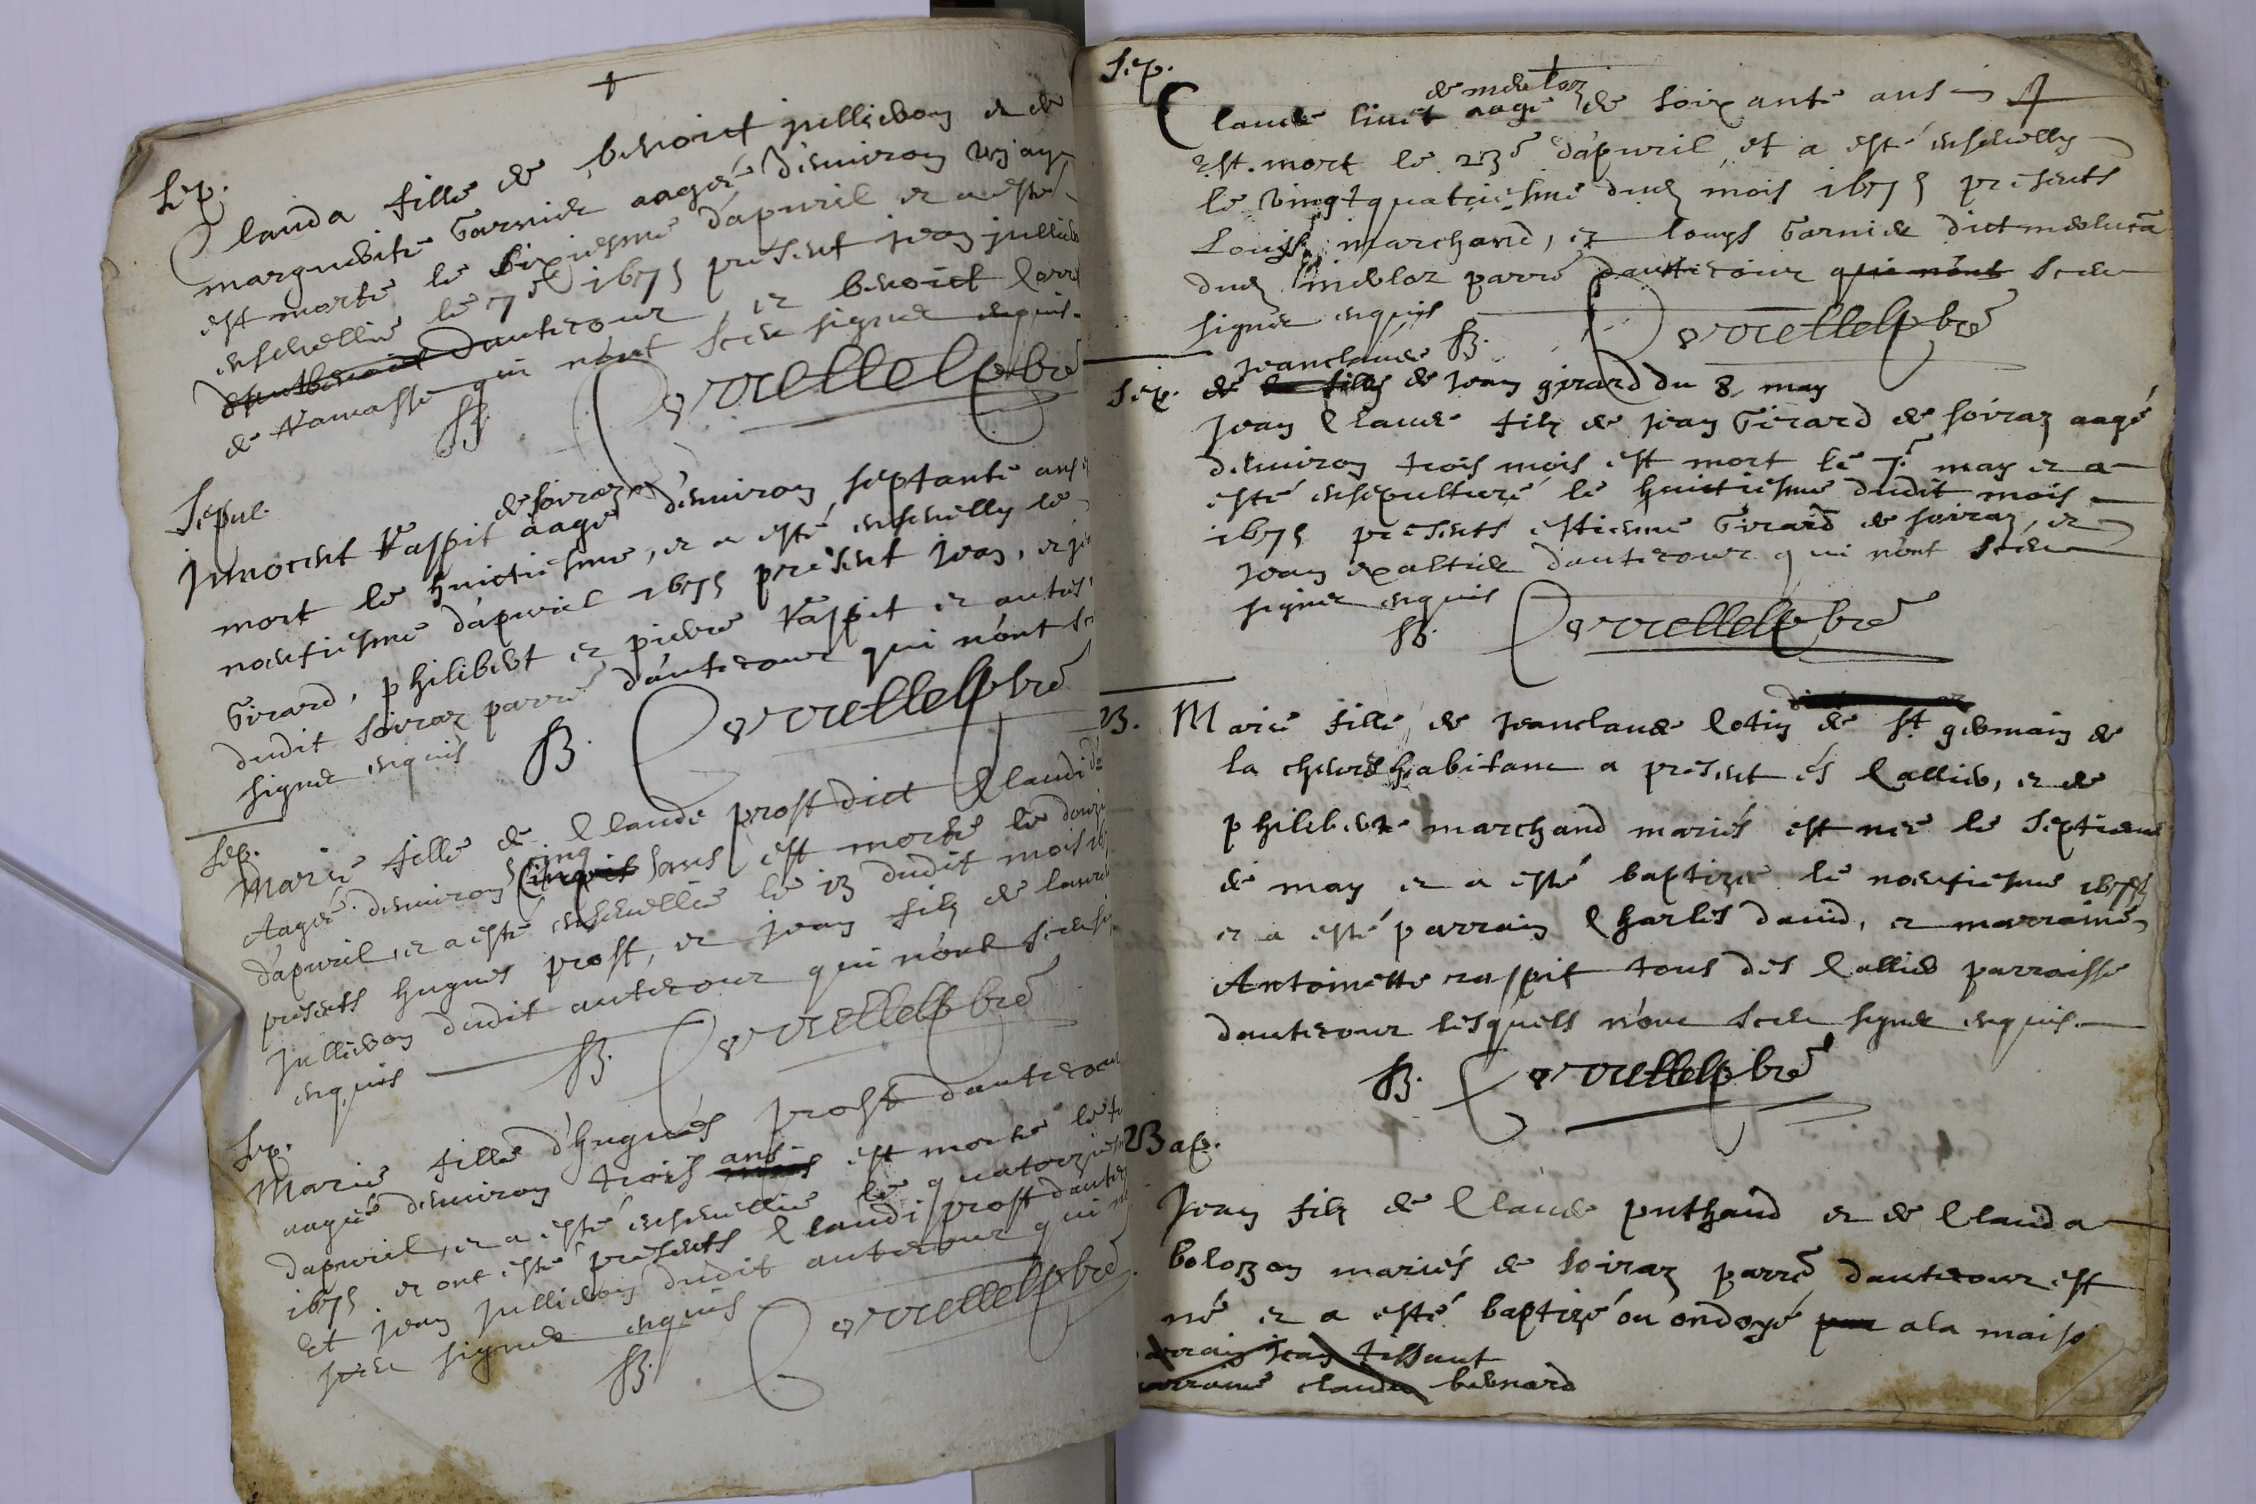 Sep.
Clauda fille de benoict jullieron et de
marguerite Garnier aagée d'environ
est morte le sixiesme d'apuril et a esté
ensevellie le 7e 1675 present jean jullier
d'auterour, et benoict
de Ramasse qui n'ont sceu signer enquis.
Sepul.
de soiraz
Innocent Raspit aagé d'environ septante ans
mort le huictiesme, et a esté ensevelly le
noeufiesme d'apuril 1675 présent jean, et
Girard, philibert et pierre Raspit et autres
dudit soiraz parre d'auterour qui n'ont
signer enquis
Sep.
Marie fille de Claude prost dict Claudi
cinq
Aagée d'environ ans est morte le
d'apuril, et a esté ensevellie le 13 dudit mois
presents hugues prost, et jean filz de
jullieron dudit auterour qui n'ont sceu
enquis
Sep.
Marie fille d'hugues prost d'auterour
ans
aagée d'environ trois mois est morte le
dapuril, et a esté ensevellie le quatorzies
1675 et ont esté presents Claudi prost
Et jean jullieron dudit auterour qui
sceu signer enquis
Sep.
Claude aagé de soixante ans
est mort le 23e d'apuril, et a esté ensevelly
le vingtquatriesme dud mois 1675 presents
Louys marchand, et louys Garnier dict
dud parre d'auterour qui n'ont sceu
signer enquis
jeanclaude
Sep. de la fille de jean girard du 8 may
Jean Claude filz de jean Girard de soiraz aagé
d'environ trois mois est mort le 7e may et a
esté ensepulturé le huictiesme dudit mois
1675 presents estienne Girard de soiraz, et
jean d'auterour qui n'ont sceu
signer enquis
B. Marie fille de jeanclaude Cotin de St. germain de
la habitant a present és Callier, et de
philiberte marchand mariés est nee le septiesme
de may et a esté baptizee le noeufiesme 1675
et a esté parrain Charles david, et marraine
Antoinette raspit tous des Callier parroisse
dauterour lesquels n'ont sceu signer enquis.
Bap.
Jean filz de Claude puthaud et de Clauda
bolozon mariés de soiraz parre d'auterour est
né et a esté baptizé ou ondoyé par a la maiso
parrain jean tissaut
marraine claudine bernard